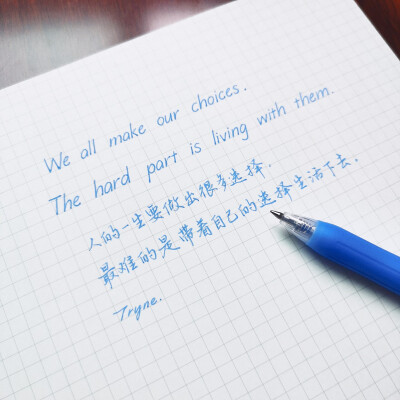 We all make our choices.
The hard part is living with them.
人的一生要做出很多选择.
最难的是带着自己的选择生活下去.
Tryne.